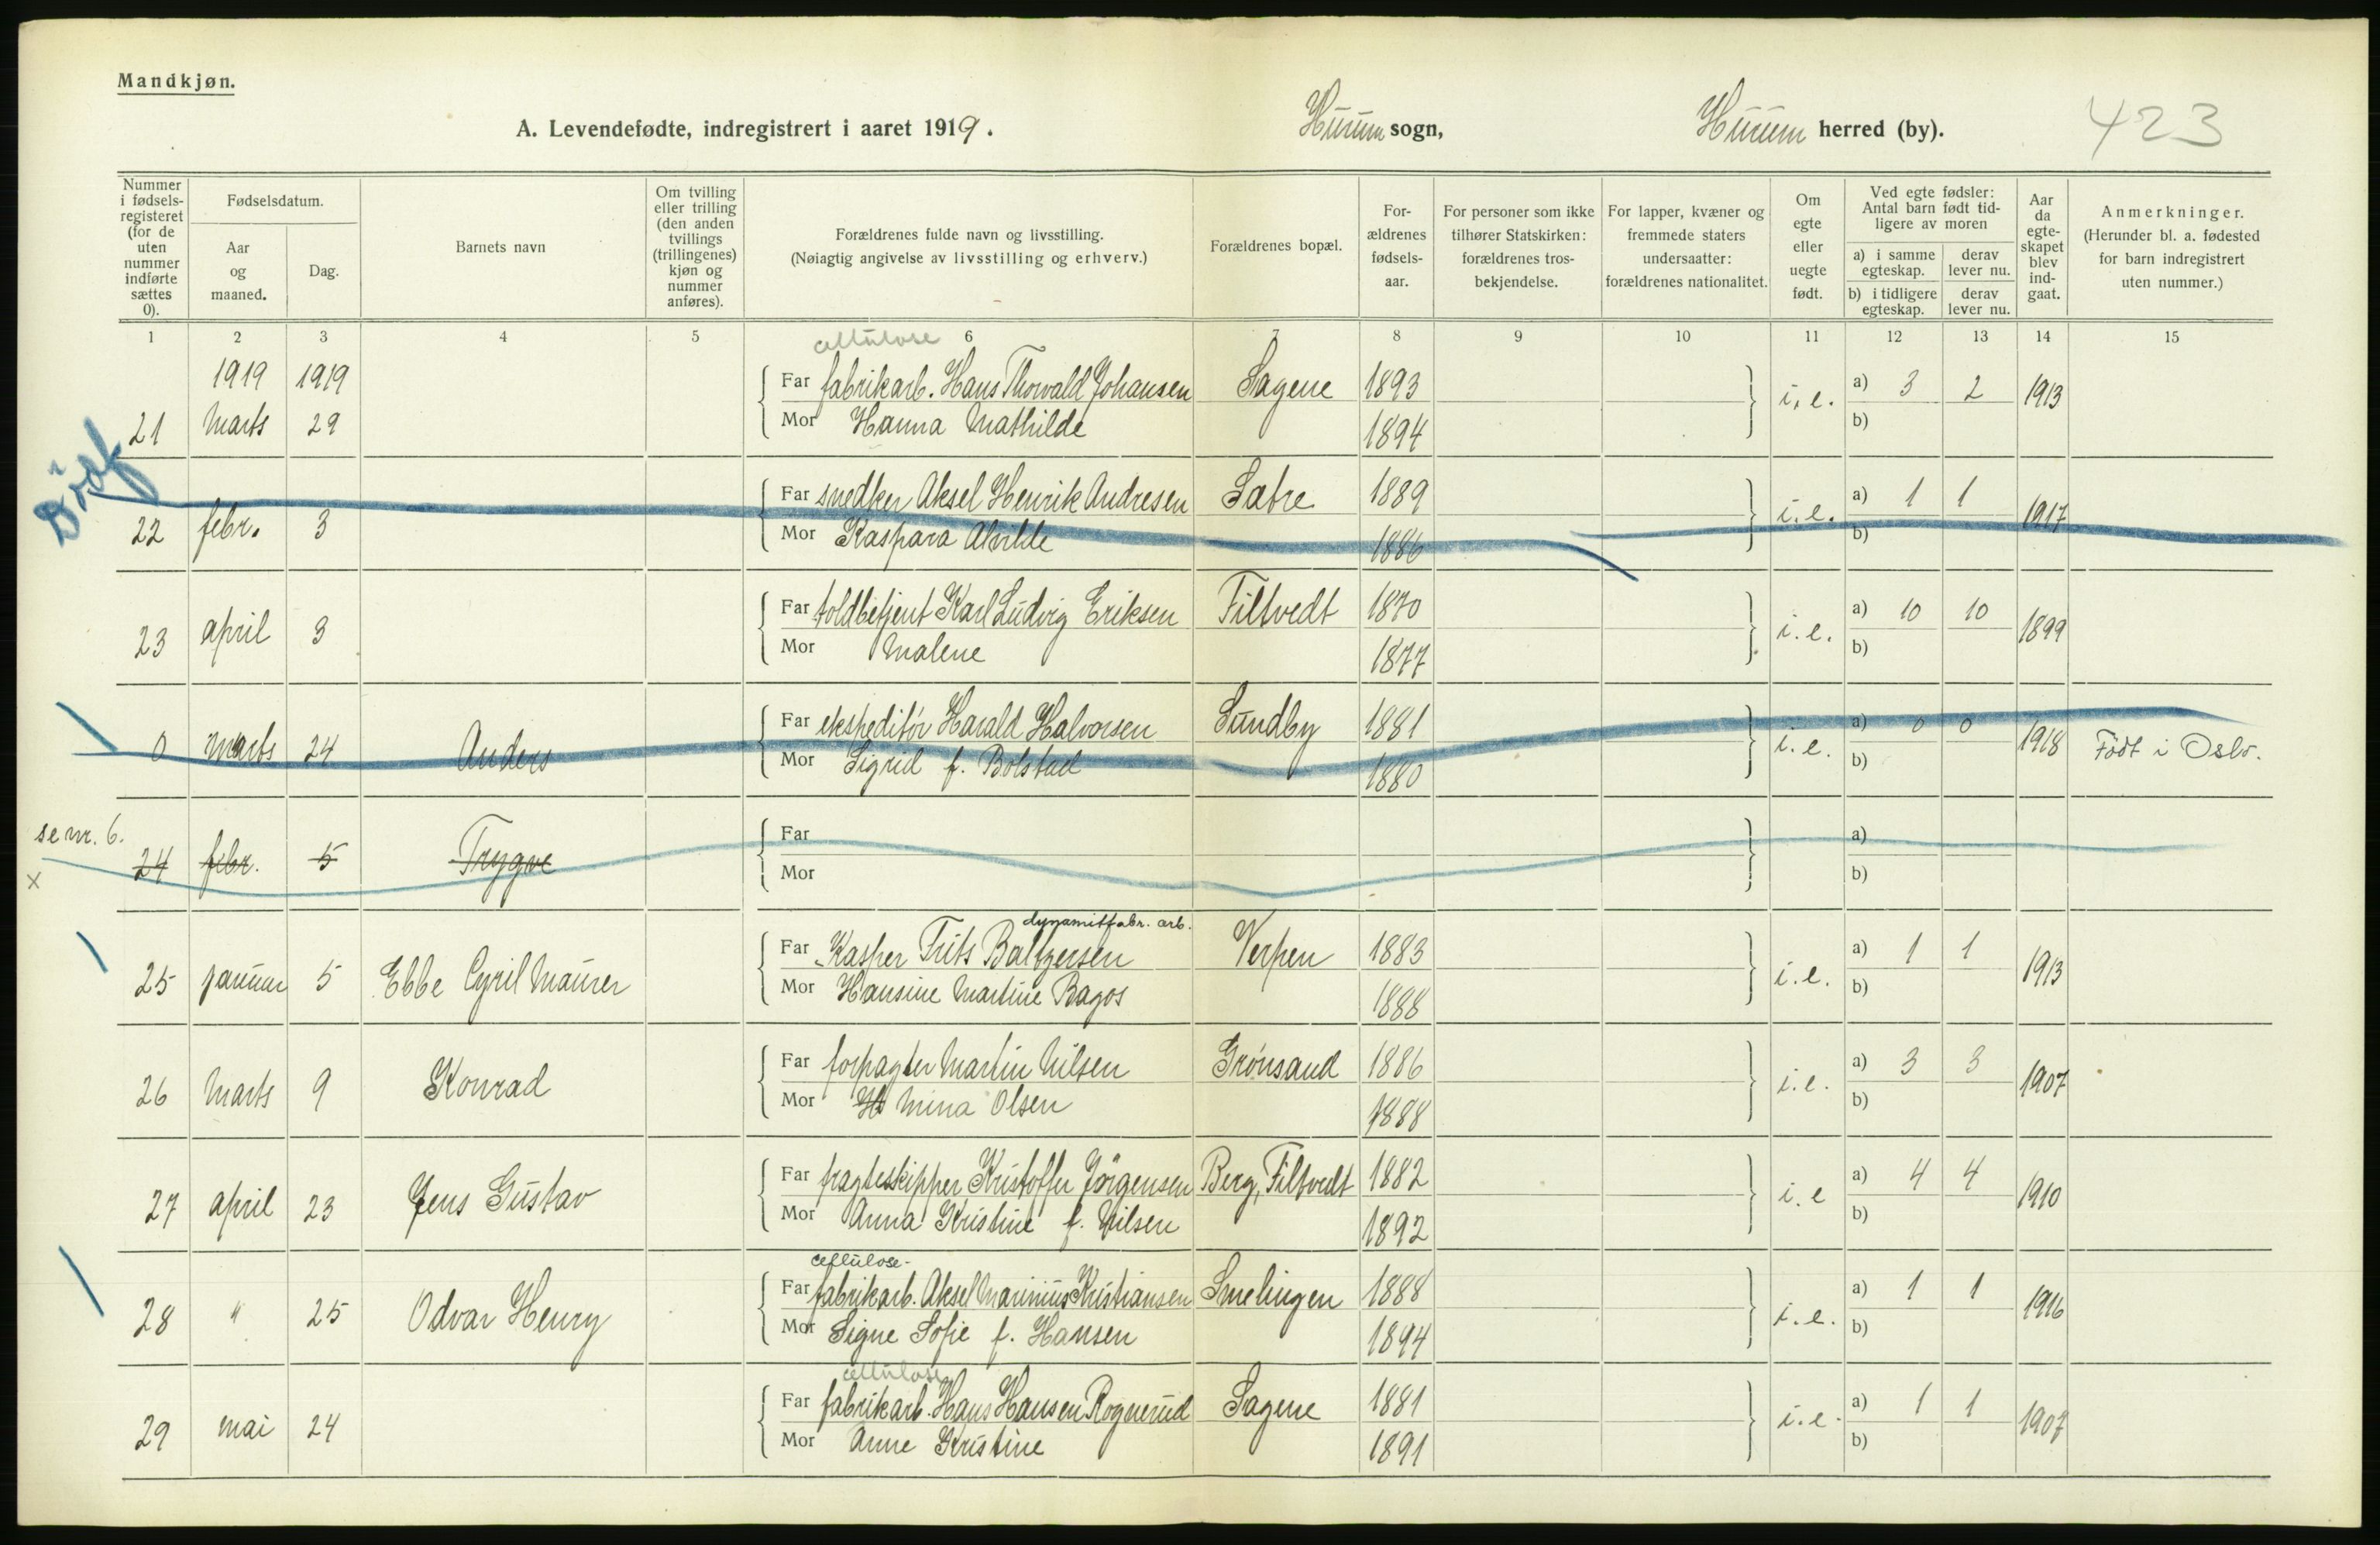 Mandkjøn.
A. Levendefødte, indregistrert i aaret 1919.
Hurum sogn,
Hurum herred (by).
423
Nummer i fødsels-registeret (for de uten nummer indførte sættes 0).
Fødselsdatum.
Aar og maaned.
Dag.
Barnets navn
Om tvilling eller trilling (den anden tvillings (trillingenes) kjøn og nummer anføres).
Forældrenes fulde navn og livsstilling.
(Nøiagtig angivelse av livsstilling og erhverv.)
Forældrenes bopæl.
For-ældrenes fødsels-aar.
For personer som ikke tilhører Statskirken: forældrenes tros-bekjendelse.
For lapper, kvæner og fremmede staters undersaatter: forældrenes nationalitet.
Om egte eller uegte født.
Ved egte fødsler: Antal barn født tid-ligere av moren
a) i samme egteskap.
derav lever nu.
b) i tidligere egteskap.
derav lever nu.
Aar da egte-skapet blev ind-gaat.
Anmerkninger.
(Herunder bl. a. fødested for barn indregistrert uten nummer.)
1 2 3 4 5 6 7 8 9 10 11 12 13 14 15
1919 1919
cellulose
Far fabrikarb. Hans Thorvald Johansen Sagene 1893 i.e. a) 3 2 1913
21 Marts 29
Mor Hanna Mathilde 1894 b)
Død
Far snedker Aksel Henrik Andresen Sætre 1889 i.e. a) 1 1 1917
22 febr. 3
Mor Kaspara Alvilde 1886 b)
Far toldbetjent Karl Ludvig Eriksen Filtvedt 1870 i.e. a) 10 10 1899
23 april 3
Mor Malene 1877 b)
Far ekspeditør Harald Halvorsen Sundby 1881 i.e. a) 0 0 1918 Født i Oslo.
0 Marts 24 Anders
Mor Sigrid f. Bolstad 1880 b)
se nr. 6.
x
24 febr. 5 Trygve
Far a)
Mor b)
dynamitfabr. arb.
Far Kasper Frits Baltzersen Verpen 1883 i.e. a) 1 1 1913
25 januar 5 Ebbe Cyril Maurer
Mor Hansine Martine Bagos 1888 b)
Far forpagter Martin Nilsen Grønsand 1886 i.e. a) 3 3 1907
26 Marts 9 Konrad
Mor Mina Olsen 1888 b)
Far fragteskipper Kristoffer Jörgensen Berg, Filtvedt 1882 i.e a) 4 4 1910
27 april 23 Jens Gustav
Mor Anna Kristine f. Nilsen 1892 b)
cellulose-
Far fabrikarb. Aksel Marinius Kristiansen Smelingen 1888 i.e. a) 1 1 1916
28 " 25 Odvar Henry
Mor Signe Sofie f. Hansen 1894 b)
cellulose
Far fabrikarb. Hans Hansen Rognerud Sagene 1881 i.e. a) 1 1 1907
29 mai 24
Mor Anne Kristine 1891 b)